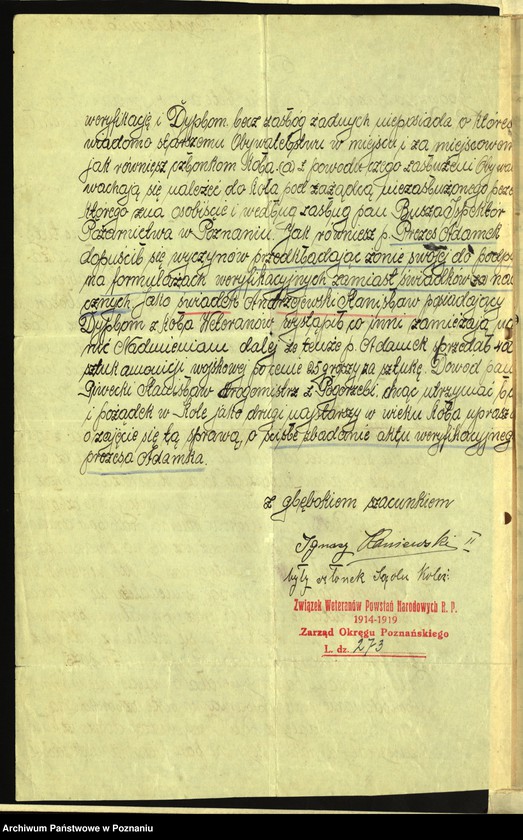 weryfikację i Dyplom. bez zasłóg żadnych nieposiada o które
wiadomo starszemu Obywatelstwu w miejscu i za miejscowem
jak również członkom Koła. z powodu czego zasłużeni Obywa
wachają się należeć do Koła pod zarządcą niezasłużonego
którego zna osobiście i według zasług pan Busza Ispektor
Pożarnictwa w Poznaniu. Jak również p. Prezes Adamek
dopuścił się wyczynów przedkładając żonie swojej do podpi
na formularzach weryfikacyjnych zamiast świadków
cznych jako świadek Andrzejewski Stanisław posiadający
Dyplom z Koła Weteranów wystąpił co inni zamieżają
nić Nadmieniam dalej że tenże p. Adamek sprzedał
sztuk amunicji wojskowej po cenie 25 groszy za sztukę. Dowód pan
Piwecki Stanisław drogomistrz z Pogorzeli, chcąc utrzymać
i pożądek w Kole jako drugi najstarszy w wieku Koła uprasza
o zajęcie się tą sprawą, o ścisłe zbadanie aktu weryfikacyjneg
prezesa Adamka.
z głębokiem szacunkiem
Ignacy Haniewski II
były członek Sądu Koleż:
Związek Weteranów Powstań Narodowych R. P.
1914-1919
Zarząd Okręgu Poznańskiego
L. dz. 273
Archiwum Państwowe w Poznaniu